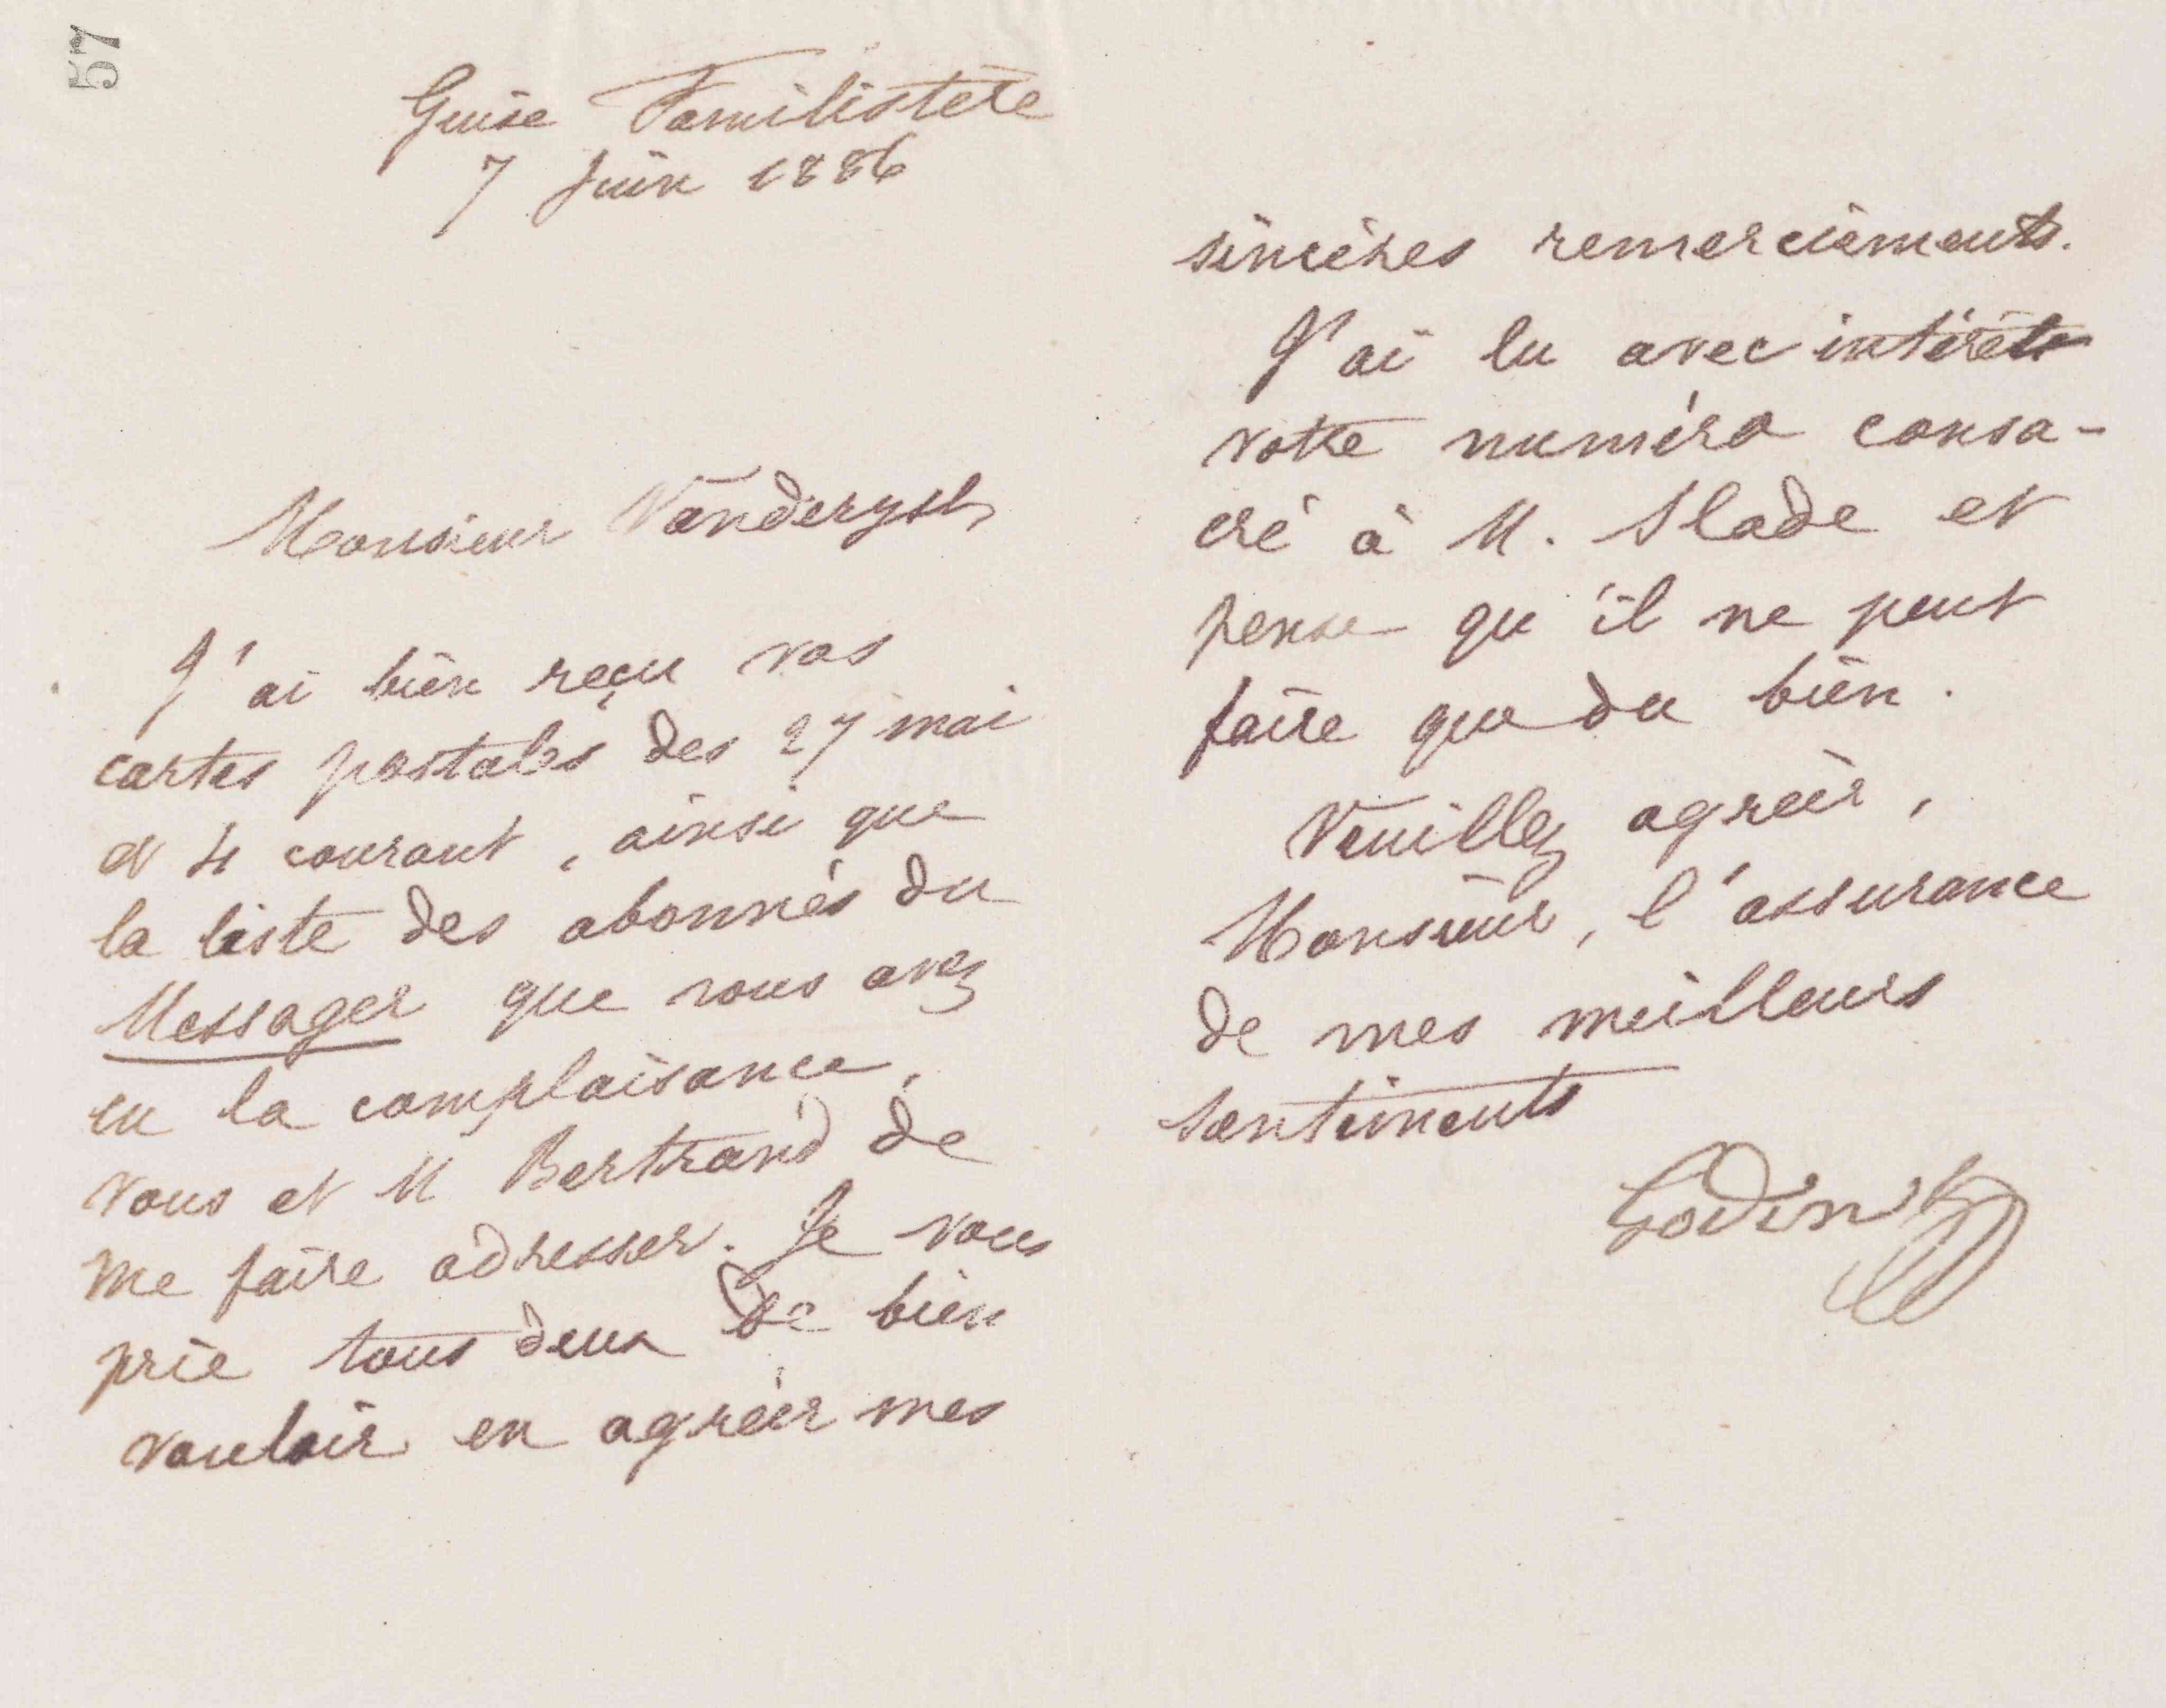 57
Guise Familistère
7 Juin 1886
Monsieur Vanderyst,
J'ai bien reçu vos
cartes postales des 27 mai
et 4 courant, ainsi que
la liste des abonnés du
Messager que vous avez
eu la complaisance,
vous et M Bertrand de
me faire adresser. Je vous
prie tous deux de bien
vouloir en agréer mes
sincères remerciements.
J'ai lu avec intérêt
votre numéro consa-
cré à M. Slade et
pense qu'il ne peut
faire que du bien.
Veuillez agréer,
Monsieur, l'assurance
de mes meilleurs
sentiments
Godin